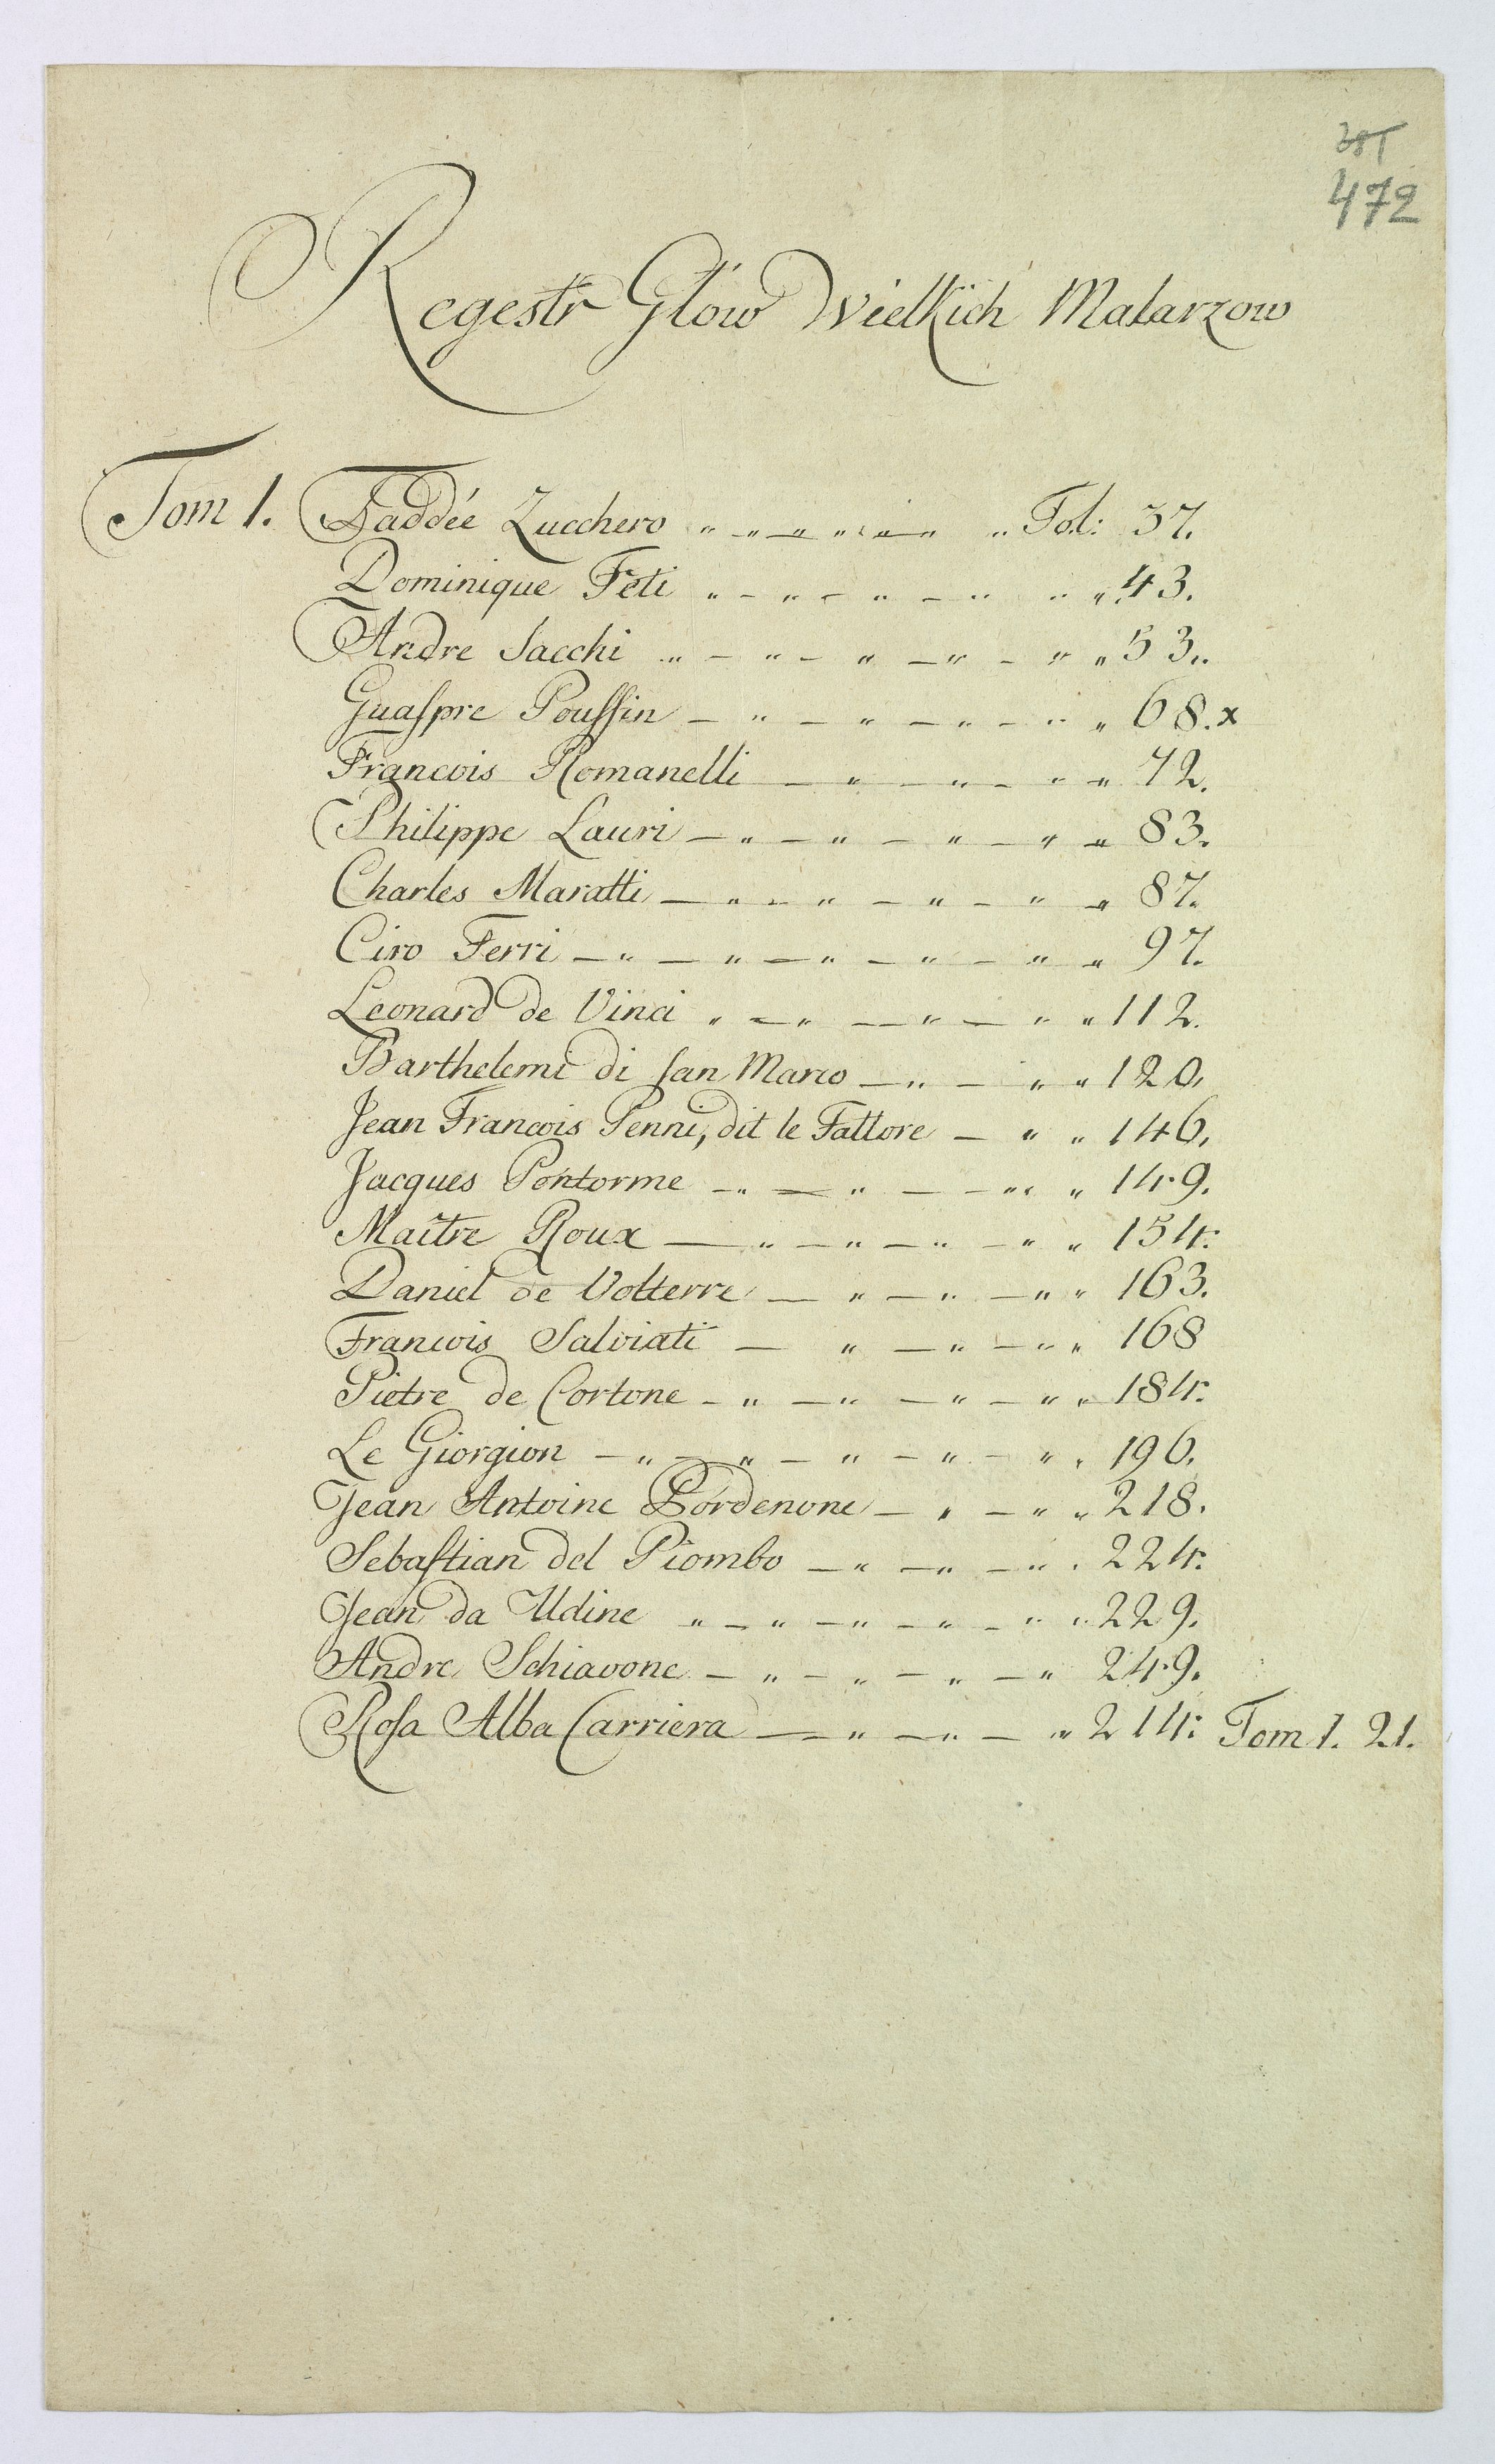 381
472
Regestr Głów Wielkich Malarzow
Tom 1. Taddée Zucchero " — " — " — " Fol: 37.
Dominique Feti " — " — " — " " 43.
Andre Sacchi " — " — " — " — " " 53.
Guaſpre Pouſſin — " — " — " — " " 68. x
Francois Romanelli — " — " — " " 72.
Philippe Lauri — " — " — " — " " 83.
Charles Maratti — " — " — " — " " 87.
Ciro Ferri — " — " — " — " — " " 97.
Leonard de Vinci " — " — " — " " 112.
Barthelemi di San Marco — " — " " 120.
Jean Francois Penni, dit le Fattore — " " 146.
Jacques Pontorme — " — " — — " " 149.
Maître Roux — " — " — " — " " 154.
Daniel de Volterre — " — " — " " 163.
Francois Salviati — " — " — " " 168
Pietre de Cortone — " — " — " — " " 184.
Le Giorgion — " — " — " — " — " " 196.
Jean Antoine Pordenone — " — " " 218.
Sebaſtian del Piombo — " — " — " " 224.
Jean da Udine " — " — " — " — " " 229.
Andre Schiavone — " — " — " — " 249.
Roſa Alba Carriera — " — " — " 214. Tom 1. 21.